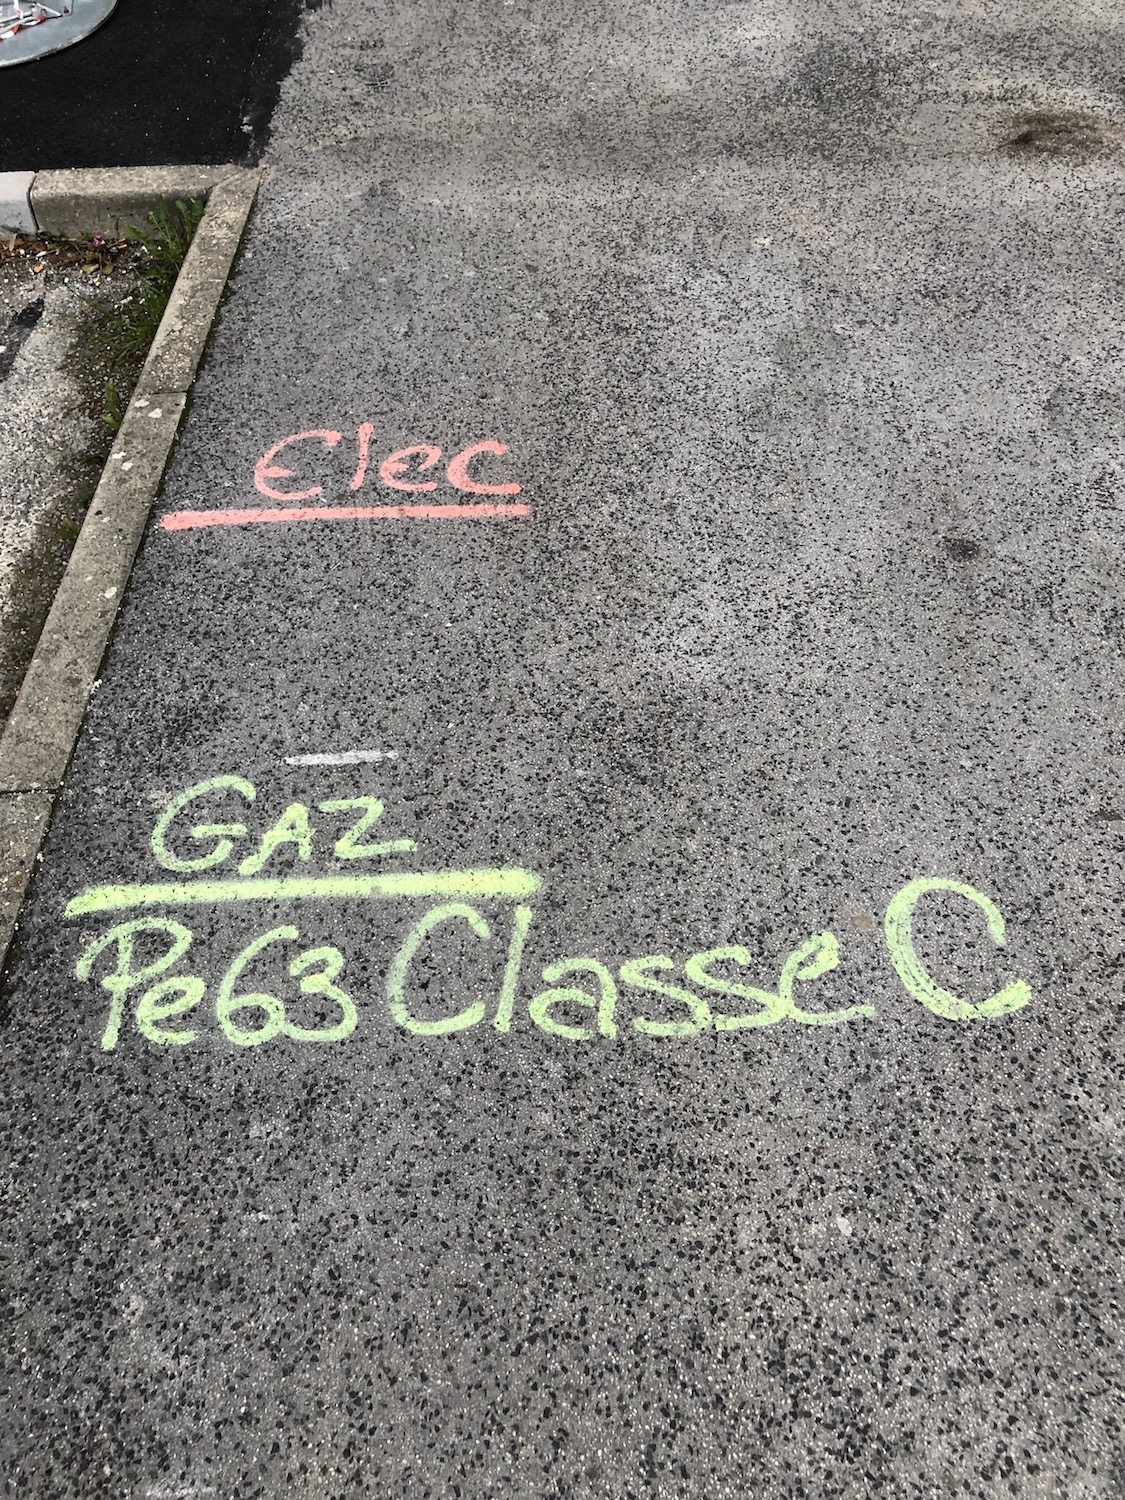 Elec
GAZ
Pe63 Classe C